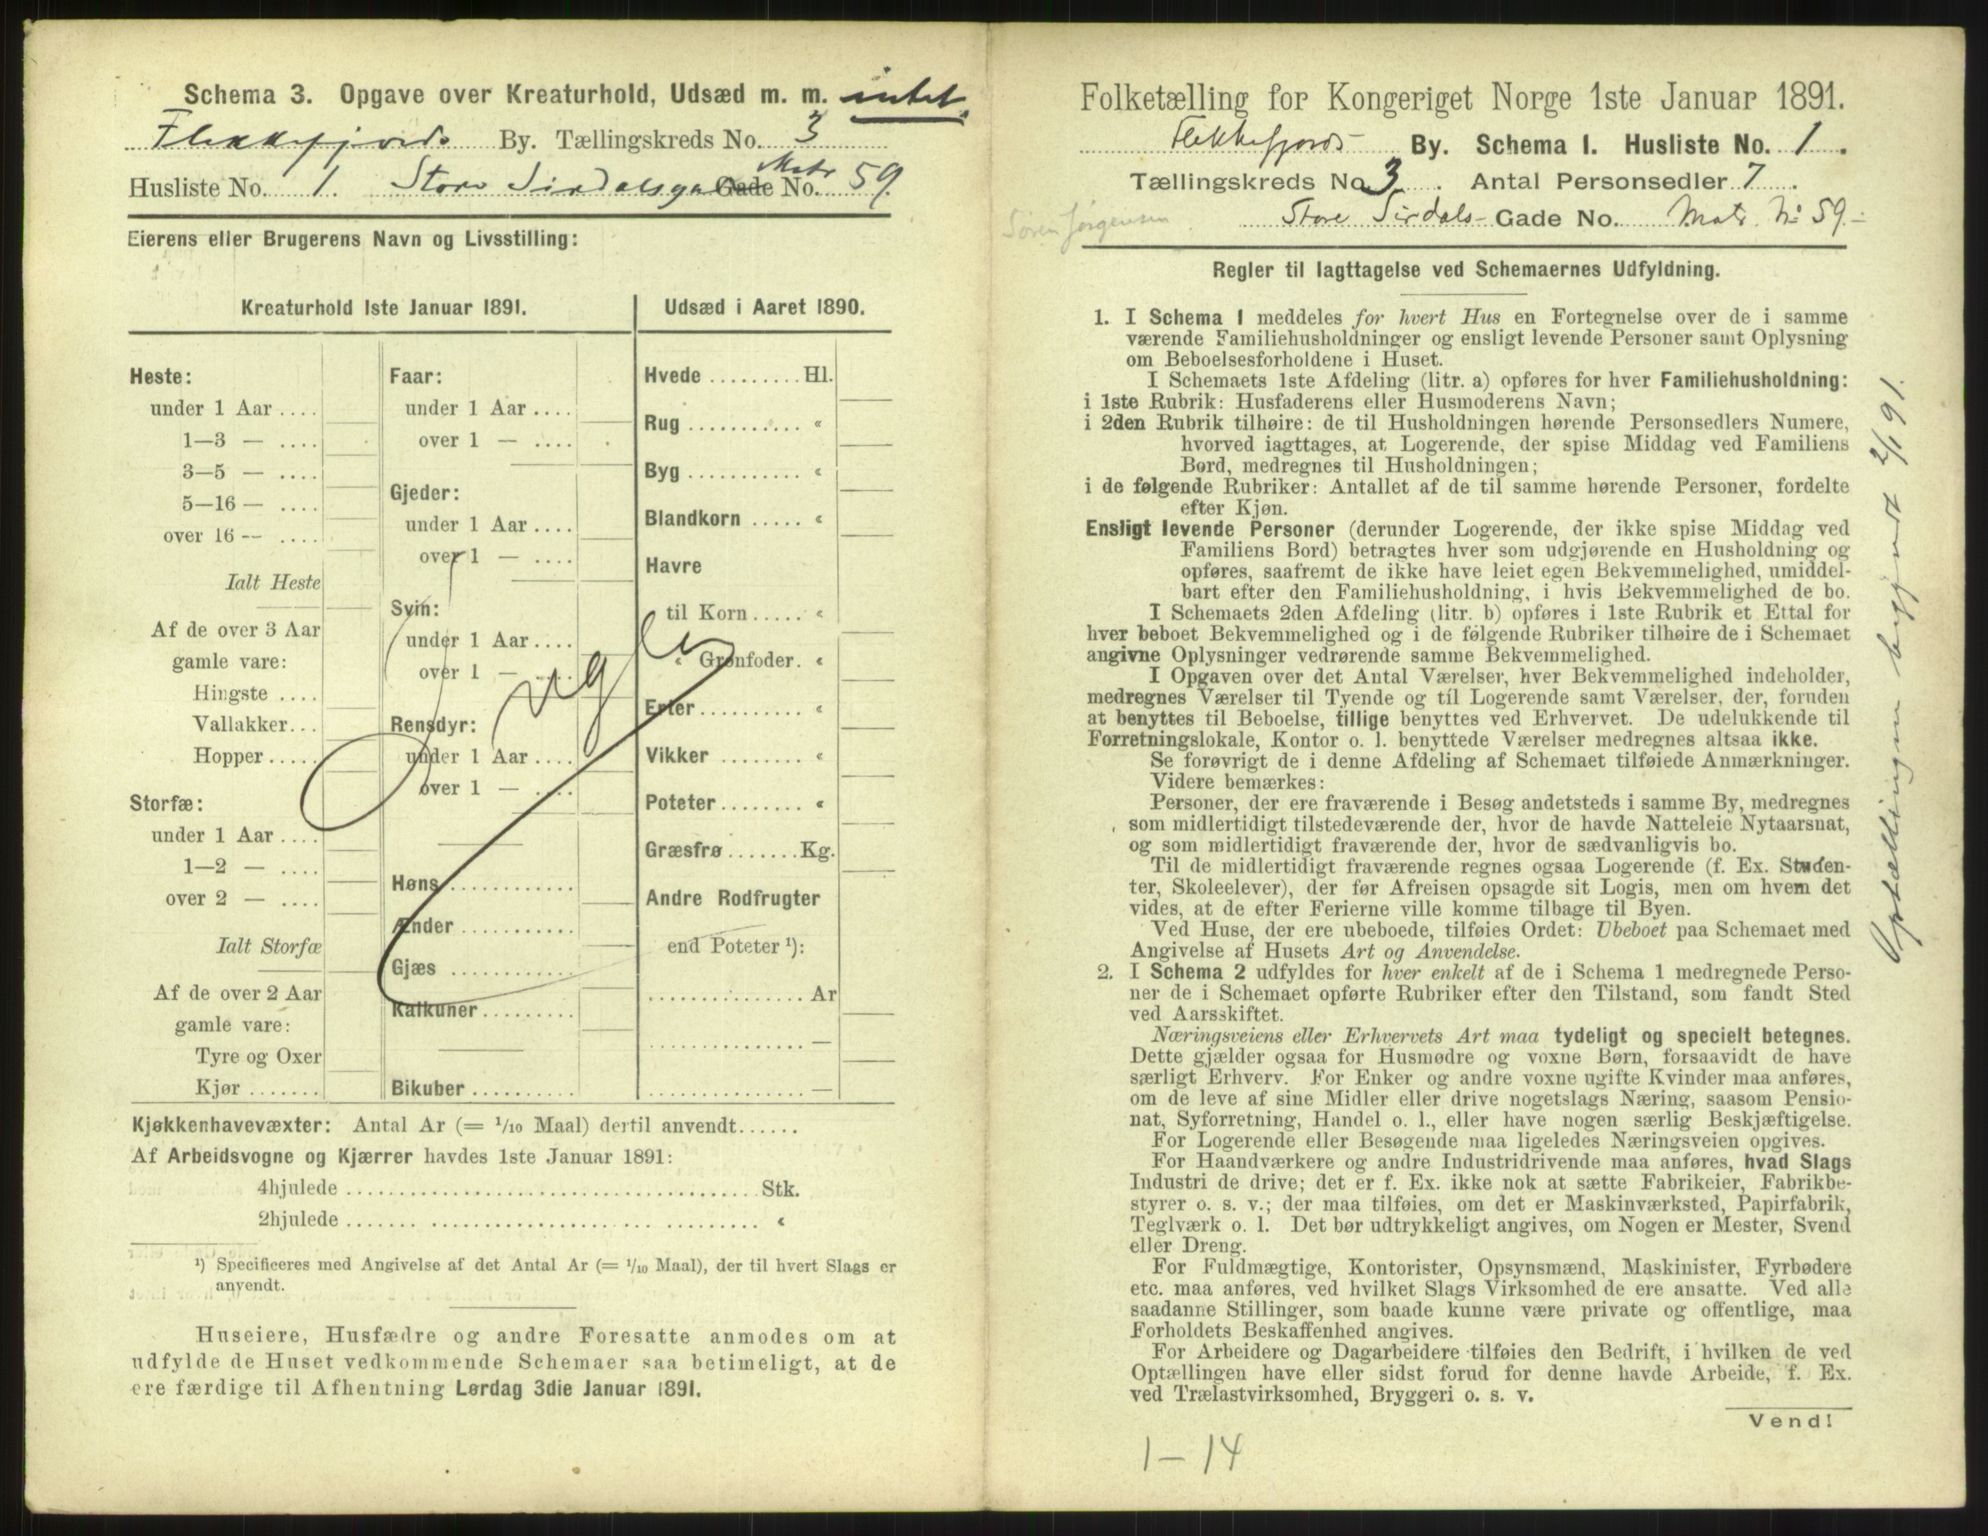 Schema 3. Opgave over Kreaturhold, Udsæd m. m. intet
Flekkefjords By. Tællingskreds No. 3
Husliste No. 1. Store Sirdalsga Gade Matr No. 59.
Eierens eller Brugerens Navn og Livsstilling:
Kreaturhold 1ste Januar 1891.
Heste:
under 1 Aar ....
1—3 — ....
3—5 — ....
5—16 — ....
over 16 — ....
Ialt Heste
Af de over 3 Aar
gamle vare:
Hingste ....
Vallakker...
Hopper.....
Storfæ:
under 1 Aar ....
1—2 — ....
over 2 — ....
Ialt Storfæ
Af de over 2 Aar
gamle vare:
Tyre og Oxer
Kjør .......
Faar:
under 1 Aar ....
over 1 — ....
Gjeder:
under 1 Aar ....
over 1 — ....
Svin:
under 1 Aar ....
over 1 — ....
Rensdyr:
under 1 Aar ....
over 1 — ....
Høns ............
Ænder ...........
Gjæs ............
Kalkuner.........
Bikuber ..........
Udsæd i Aaret 1890.
Hvede ......... Hl.
Rug ........... “
Byg ........... “
Blandkorn ..... “
Havre
til Korn ..... “
“ Grønfoder. “
Erter.......... “
Vikker ........ “
Poteter........ “
Græsfrø ....... Kg.
Andre Rodfrugter
end Poteter ¹):
............... Ar
............... —
............... —
Kjøkkenhavevæxter: Antal Ar (= 1/10 Maal) dertil anvendt......
Af Arbeidsvogne og Kjærrer havdes 1ste Januar 1891:
4hjulede ........................................ Stk.
2hjulede ........................................ “
¹) Specificeres med Angivelse af det Antal Ar (= 1/10 Maal), der til hvert Slags er
anvendt.
Huseiere, Husfædre og andre Foresatte anmodes om at
udfylde de Huset vedkommende Schemaer saa betimeligt, at de
ere færdige til Afhentning Lørdag 3die Januar 1891.
Folketælling for Kongeriget Norge 1ste Januar 1891.
Flekkefjords By. Schema I. Husliste No. 1.
Tællingskreds No 3. Antal Personsedler 7.
Søren Jørgensen
Store Sirdals- Gade No. Matr. No 59.
Regler til Iagttagelse ved Schemaernes Udfyldning.
1. I Schema 1 meddeles for hvert Hus en Fortegnelse over de i samme
værende Familiehusholdninger og ensligt levende Personer samt Oplysning
om Beboelsesforholdene i Huset.
I Schemaets 1ste Afdeling (litr. a) opføres for hver Familiehusholdning:
i 1ste Rubrik: Husfaderens eller Husmoderens Navn;
i 2den Rubrik tilhøire: de til Husholdningen hørende Personsedlers Numere,
hvorved iagttages, at Logerende, der spise Middag ved Familiens
Bord, medregnes til Husholdningen;
i de følgende Rubriker: Antallet af de til samme hørende Personer, fordelte
efter Kjøn.
Ensligt levende Personer (derunder Logerende, der ikke spise Middag ved
Familiens Bord) betragtes hver som udgjørende en Husholdning og
opføres, saafremt de ikke have leiet egen Bekvemmelighed, umiddel-
bart efter den Familiehusholdning, i hvis Bekvemmelighed de bo.
I Schemaets 2den Afdeling (litr. b) opføres i 1ste Rubrik et Ettal for
hver beboet Bekvemmelighed og i de følgende Rubriker tilhøire de i Schemaet
angivne Oplysninger vedrørende samme Bekvemmelighed.
I Opgaven over det Antal Værelser, hver Bekvemmelighed indeholder,
medregnes Værelser til Tyende og til Logerende samt Værelser, der, foruden
at benyttes til Beboelse, tillige benyttes ved Erhvervet. De udelukkende til
Forretningslokale, Kontor o. l. benyttede Værelser medregnes altsaa ikke.
Se forøvrigt de i denne Afdeling af Schemaet tilføiede Anmærkninger.
Videre bemærkes:
Personer, der ere fraværende i Besøg andetsteds i samme By, medregnes
som midlertidigt tilstedeværende der, hvor de havde Natteleie Nytaarsnat,
og som midlertidigt fraværende der, hvor de sædvanligvis bo.
Til de midlertidigt fraværende regnes ogsaa Logerende (f. Ex. Studen-
ter, Skoleelever), der før Afreisen opsagde sit Logis, men om hvem det
vides, at de efter Ferierne ville komme tilbage til Byen.
Ved Huse, der ere ubeboede, tilføies Ordet: Ubeboet paa Schemaet med
Angivelse af Husets Art og Anvendelse.
2. I Schema 2 udfyldes for hver enkelt af de i Schema 1 medregnede Perso-
ner de i Schemaet opførte Rubriker efter den Tilstand, som fandt Sted
ved Aarsskiftet.
Næringsveiens eller Erhvervets Art maa tydeligt og specielt betegnes.
Dette gjælder ogsaa for Husmødre og voxne Børn, forsaavidt de have
særligt Erhverv. For Enker og andre voxne ugifte Kvinder maa anføres,
om de leve af sine Midler eller drive nogetslags Næring, saasom Pensio-
nat, Syforretning, Handel o. l., eller have nogen særlig Beskjæftigelse.
For Logerende eller Besøgende maa ligeledes Næringsveien opgives.
For Haandværkere og andre Industridrivende maa anføres, hvad Slags
Industri de drive; det er f. Ex. ikke nok at sætte Fabrikeier, Fabrikbe-
styrer o. s. v.; der maa tilføies, om det er Maskinværksted, Papirfabrik,
Teglværk o. l. Det bør udtrykkeligt angives, om Nogen er Mester, Svend
eller Dreng.
For Fuldmægtige, Kontorister, Opsynsmænd, Maskinister, Fyrbødere
etc. maa anføres, ved hvilket Slags Virksomhed de ere ansatte. Ved alle
saadanne Stillinger, som baade kunne være private og offentlige, maa
Forholdets Beskaffenhed angives.
For Arbeidere og Dagarbeidere tilføies den Bedrift, i hvilken de ved
Optællingen have eller sidst forud for denne havde Arbeide, f. Ex.
ved Trælastvirksomhed, Bryggeri o. s. v.
Vend!
1–14
Optællingen begyndt 2/1 91.